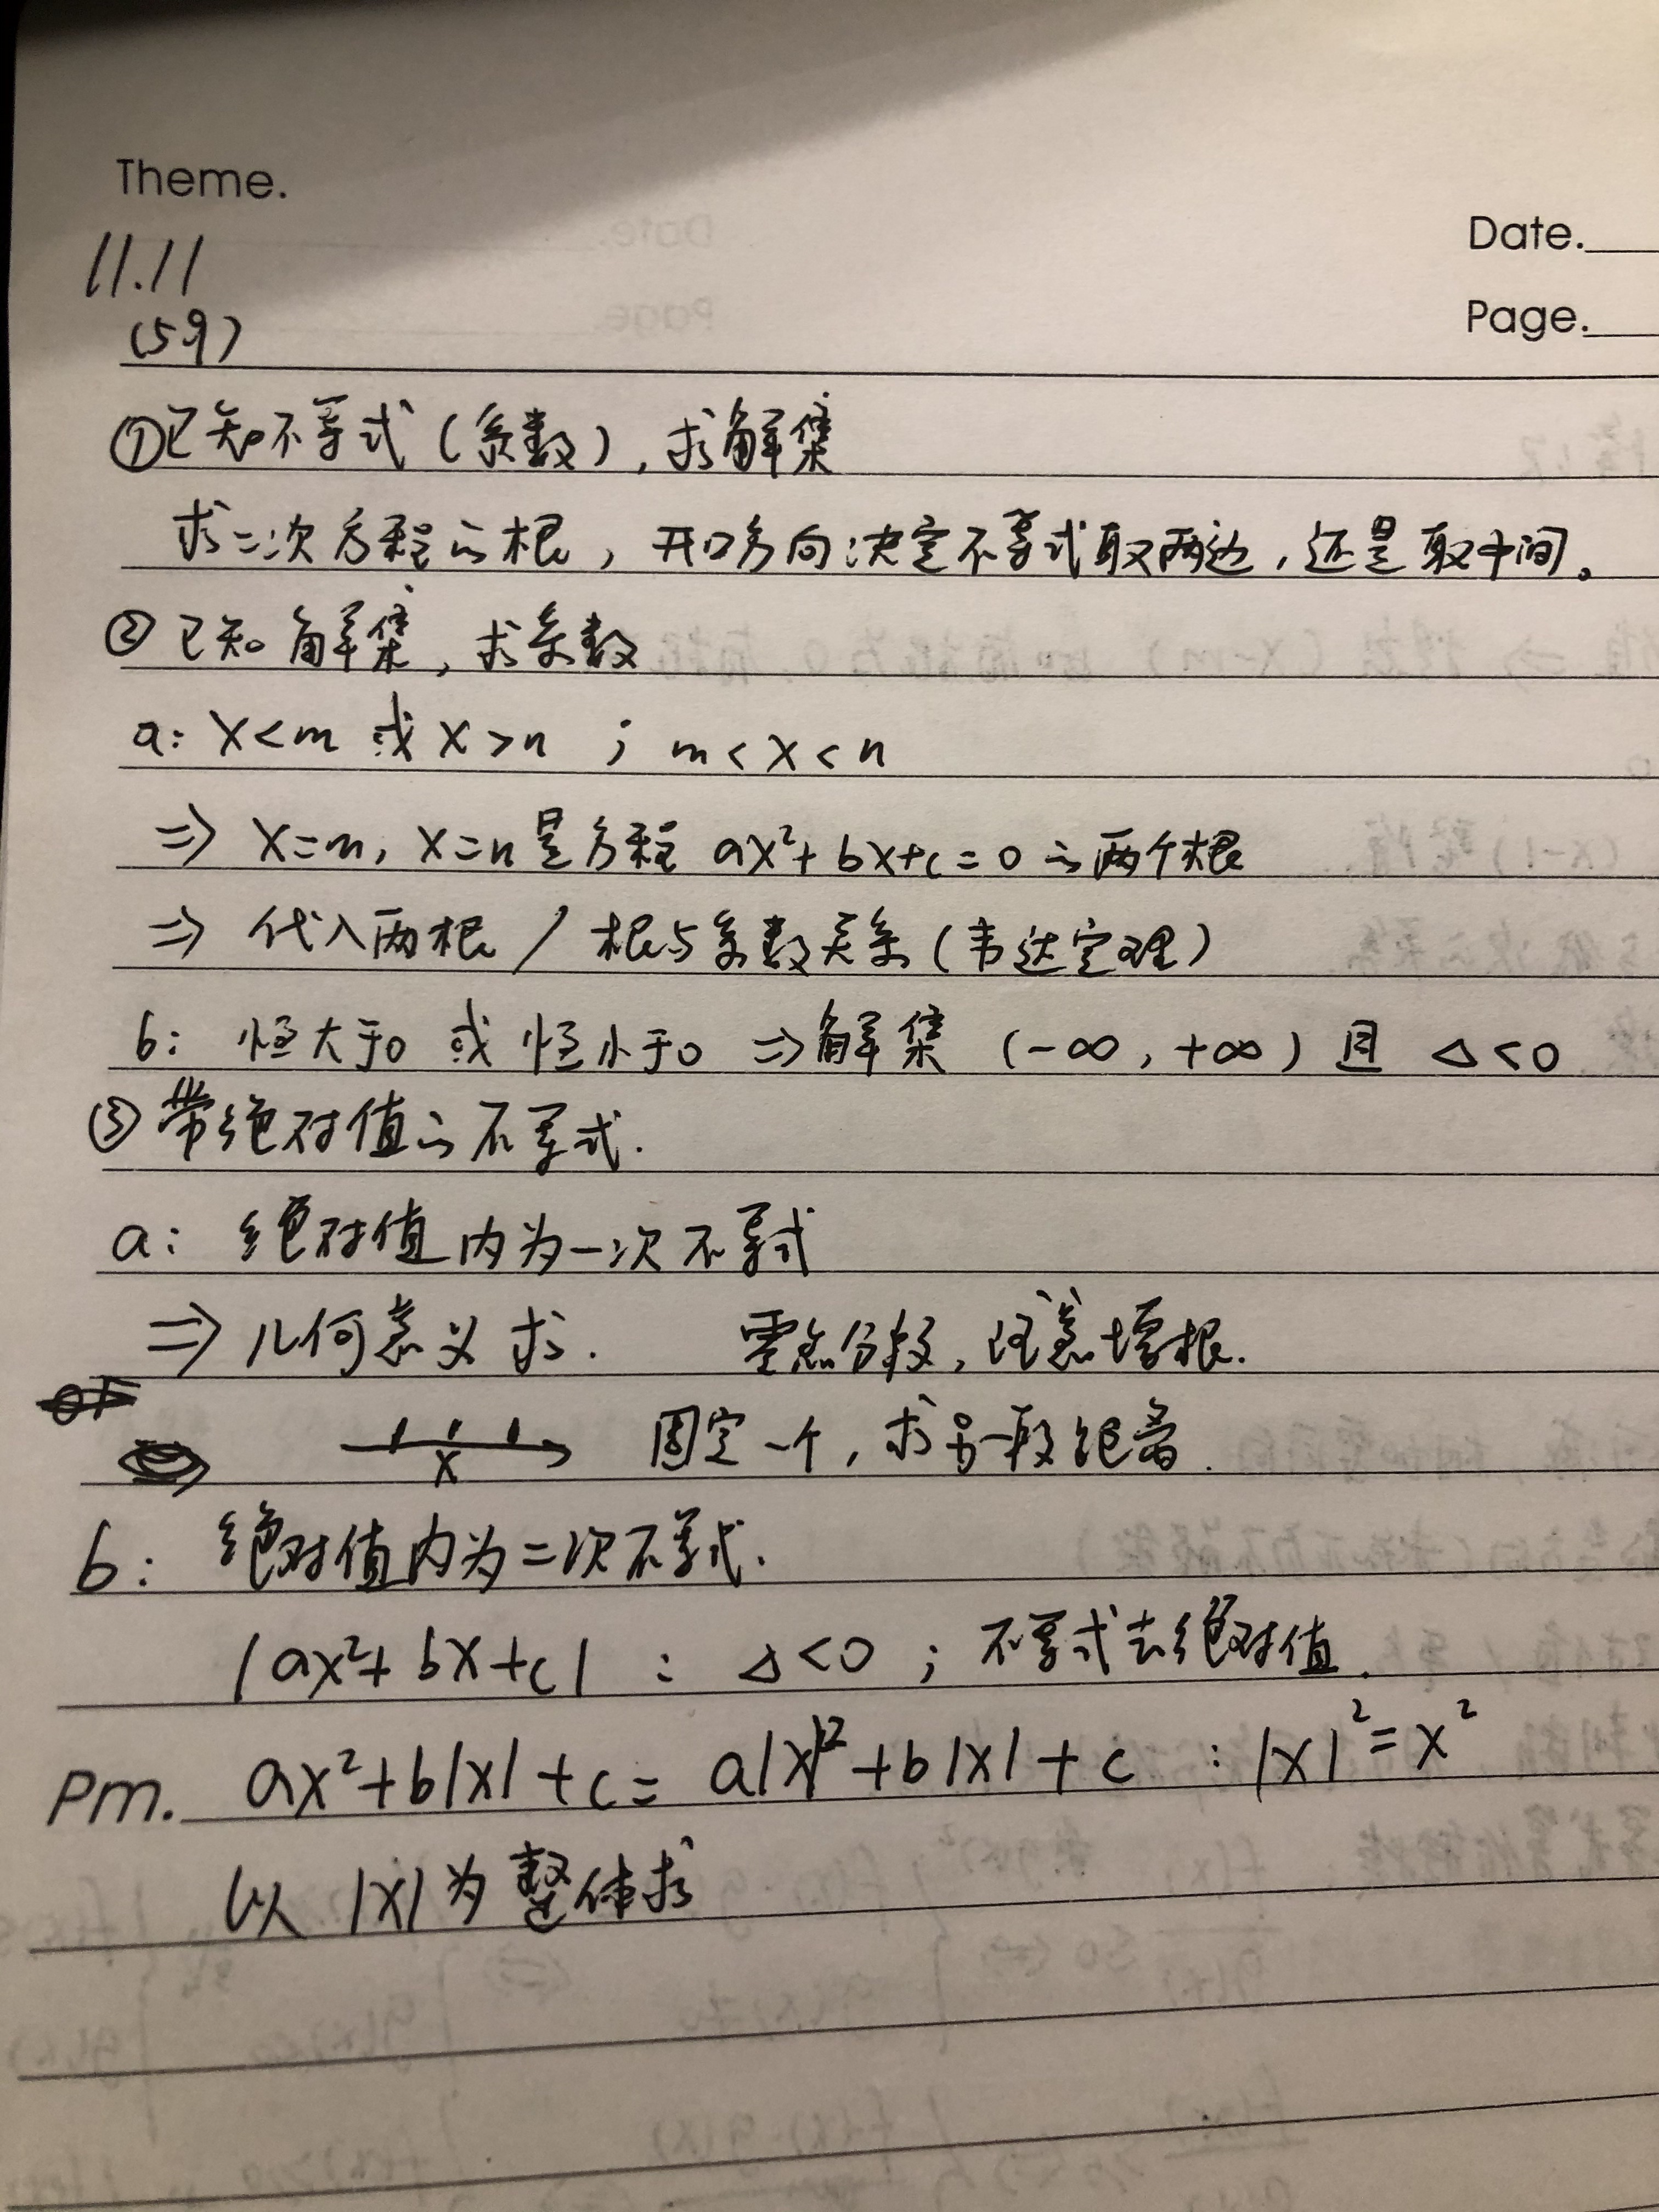 Theme.
Date.
Page.
11.11
(59)
①已知不等式(系数),求解集
求二次方程的根,开口方向决定不等式取两边,还是取中间。
②已知解集,求系数
a: x<m 或 x>n ; m<x<n
⇒ x=m, x=n是方程 ax²+bx+c=0的两个根
⇒ 代入两根 / 根与系数关系(韦达定理)
b: 恒大于0 或 恒小于0 ⇒解集 (-∞,+∞) 且 Δ<0
③带绝对值的不等式.
a: 绝对值内为一次不等式
⇒ 几何意义求. 零点分段,注意增根.
x 固定一个,求另一段距离.
b: 绝对值内为二次不等式.
|ax²+bx+c| : Δ<0 ; 不等式去绝对值.
Pm. ax²+b|x|+c= a|x|²+b|x|+c : |x|²=x²
以 |x| 为整体求